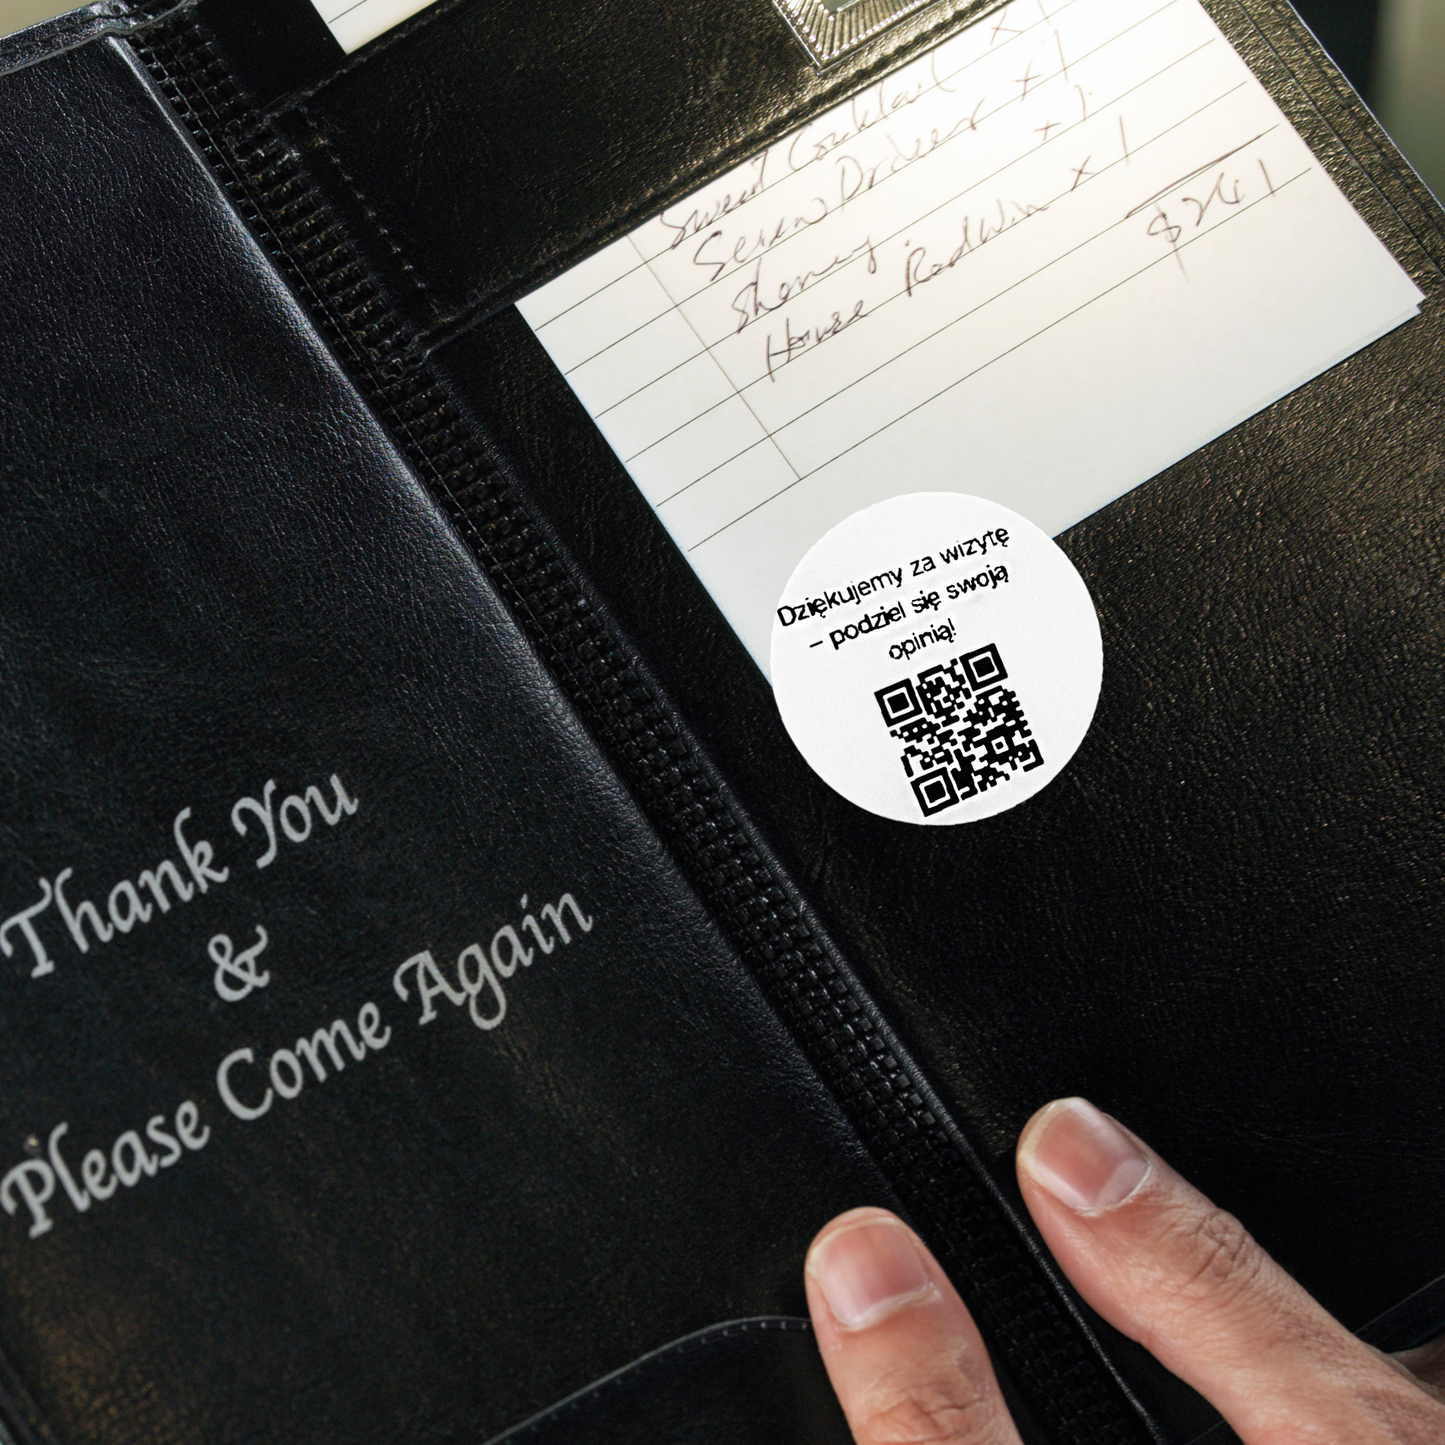 Sweet Cocktail x 1
Screw Drdeer x 1
Sherry x 1
House Red Win x 1
$241
Dziękujemy za wizytę
– podziel się swoją
opinią!
Thank You
&
Please Come Again